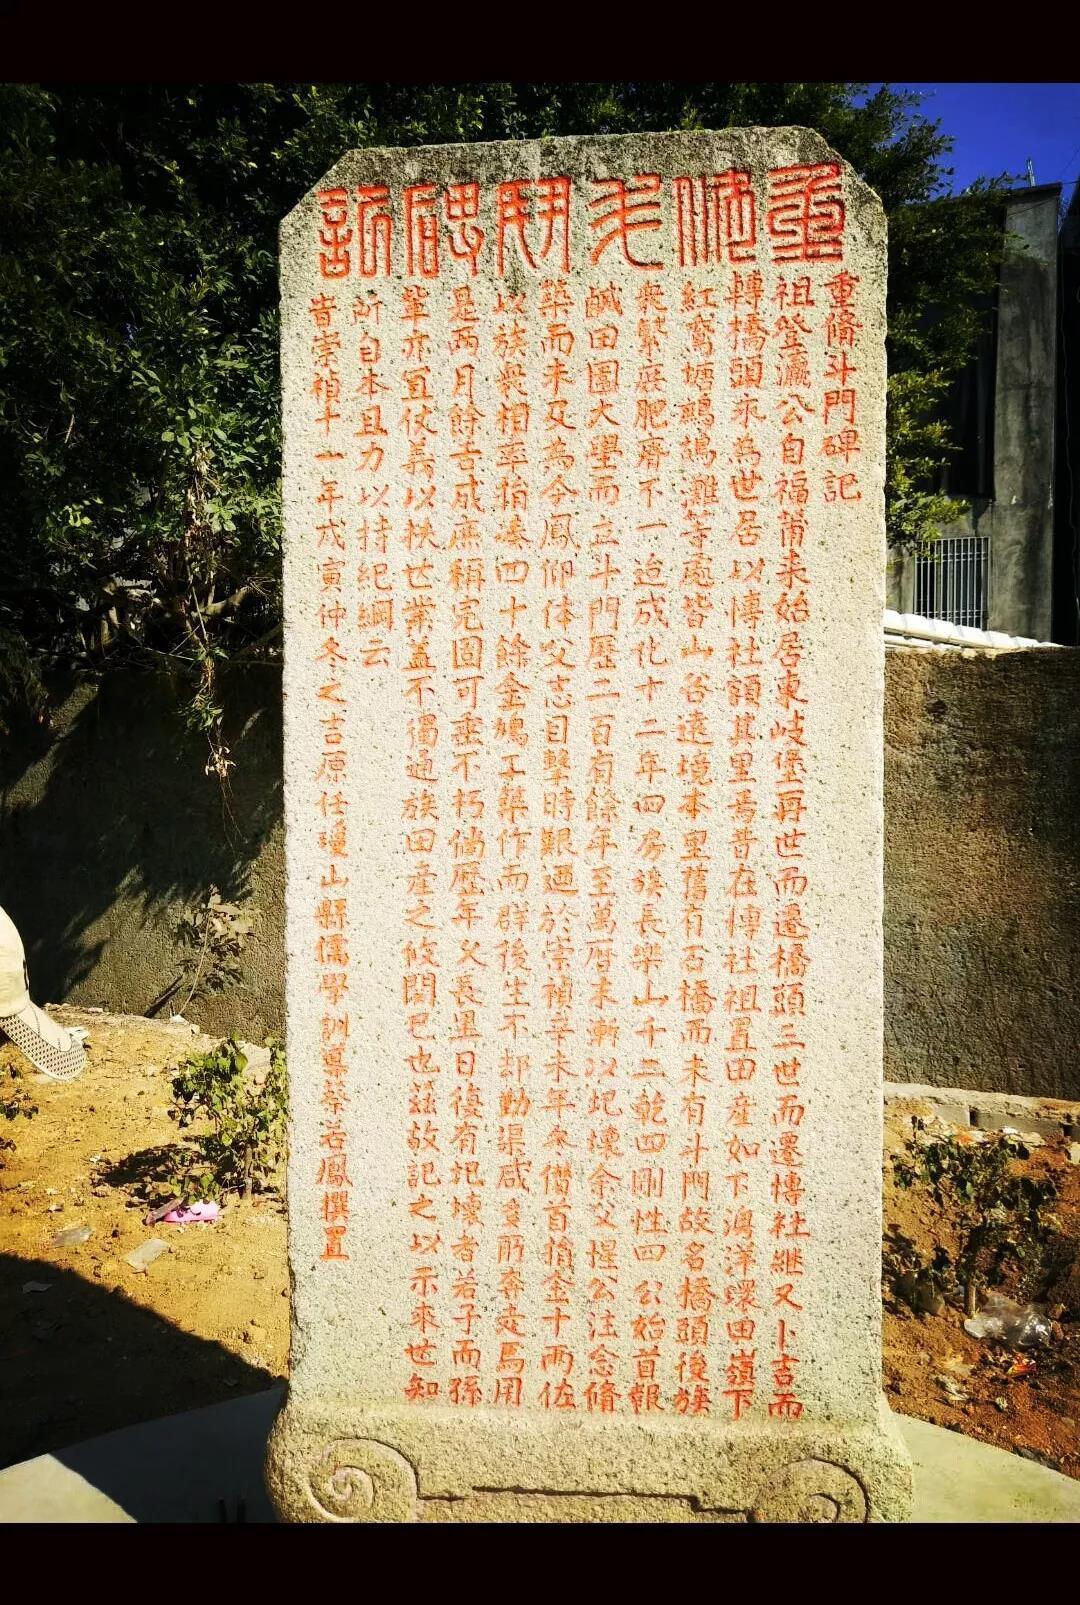 重脩斗門碑記
重脩斗門碑記
祖登瀛公自福莆来始居東岐堡再世而遷橋頭三世而遷博社継又卜吉而
轉橋頭永為世居以博社頟其里焉昔在博社祖置田産如下海洋環田嶺下
紅鴛塘鷓鴣灘等處皆山谷遠境本里舊有石橋而未有斗門故名橋頭後族
衆繁庶肥瘠不一迨成化十二年四房族長樂山千二乾四剛性四公始首報
鹹田圖大壆而立斗門歷二百有餘年至萬曆末漸以圮壞余父惺公注念脩
築而未及為今鳳仰体父志目擊時艱迺於崇禎辛未年冬僣首捐金十兩佐
以族衆相率捐凑四十餘金鳩工築作而群後生不邦勤渠咸多所奔走焉用
是两月餘告成庶稱完固可垂不朽倘歷年父長異日復有圮壞者若子而孫
輩亦冝仗義以扶世業盖不獨通族田産之攸関已也兹故記之以示来世知
所自本且力以持紀綱云
旹崇禎十一年戊寅仲冬之吉原任瓊山縣儒學訓導蔡若鳳撰置